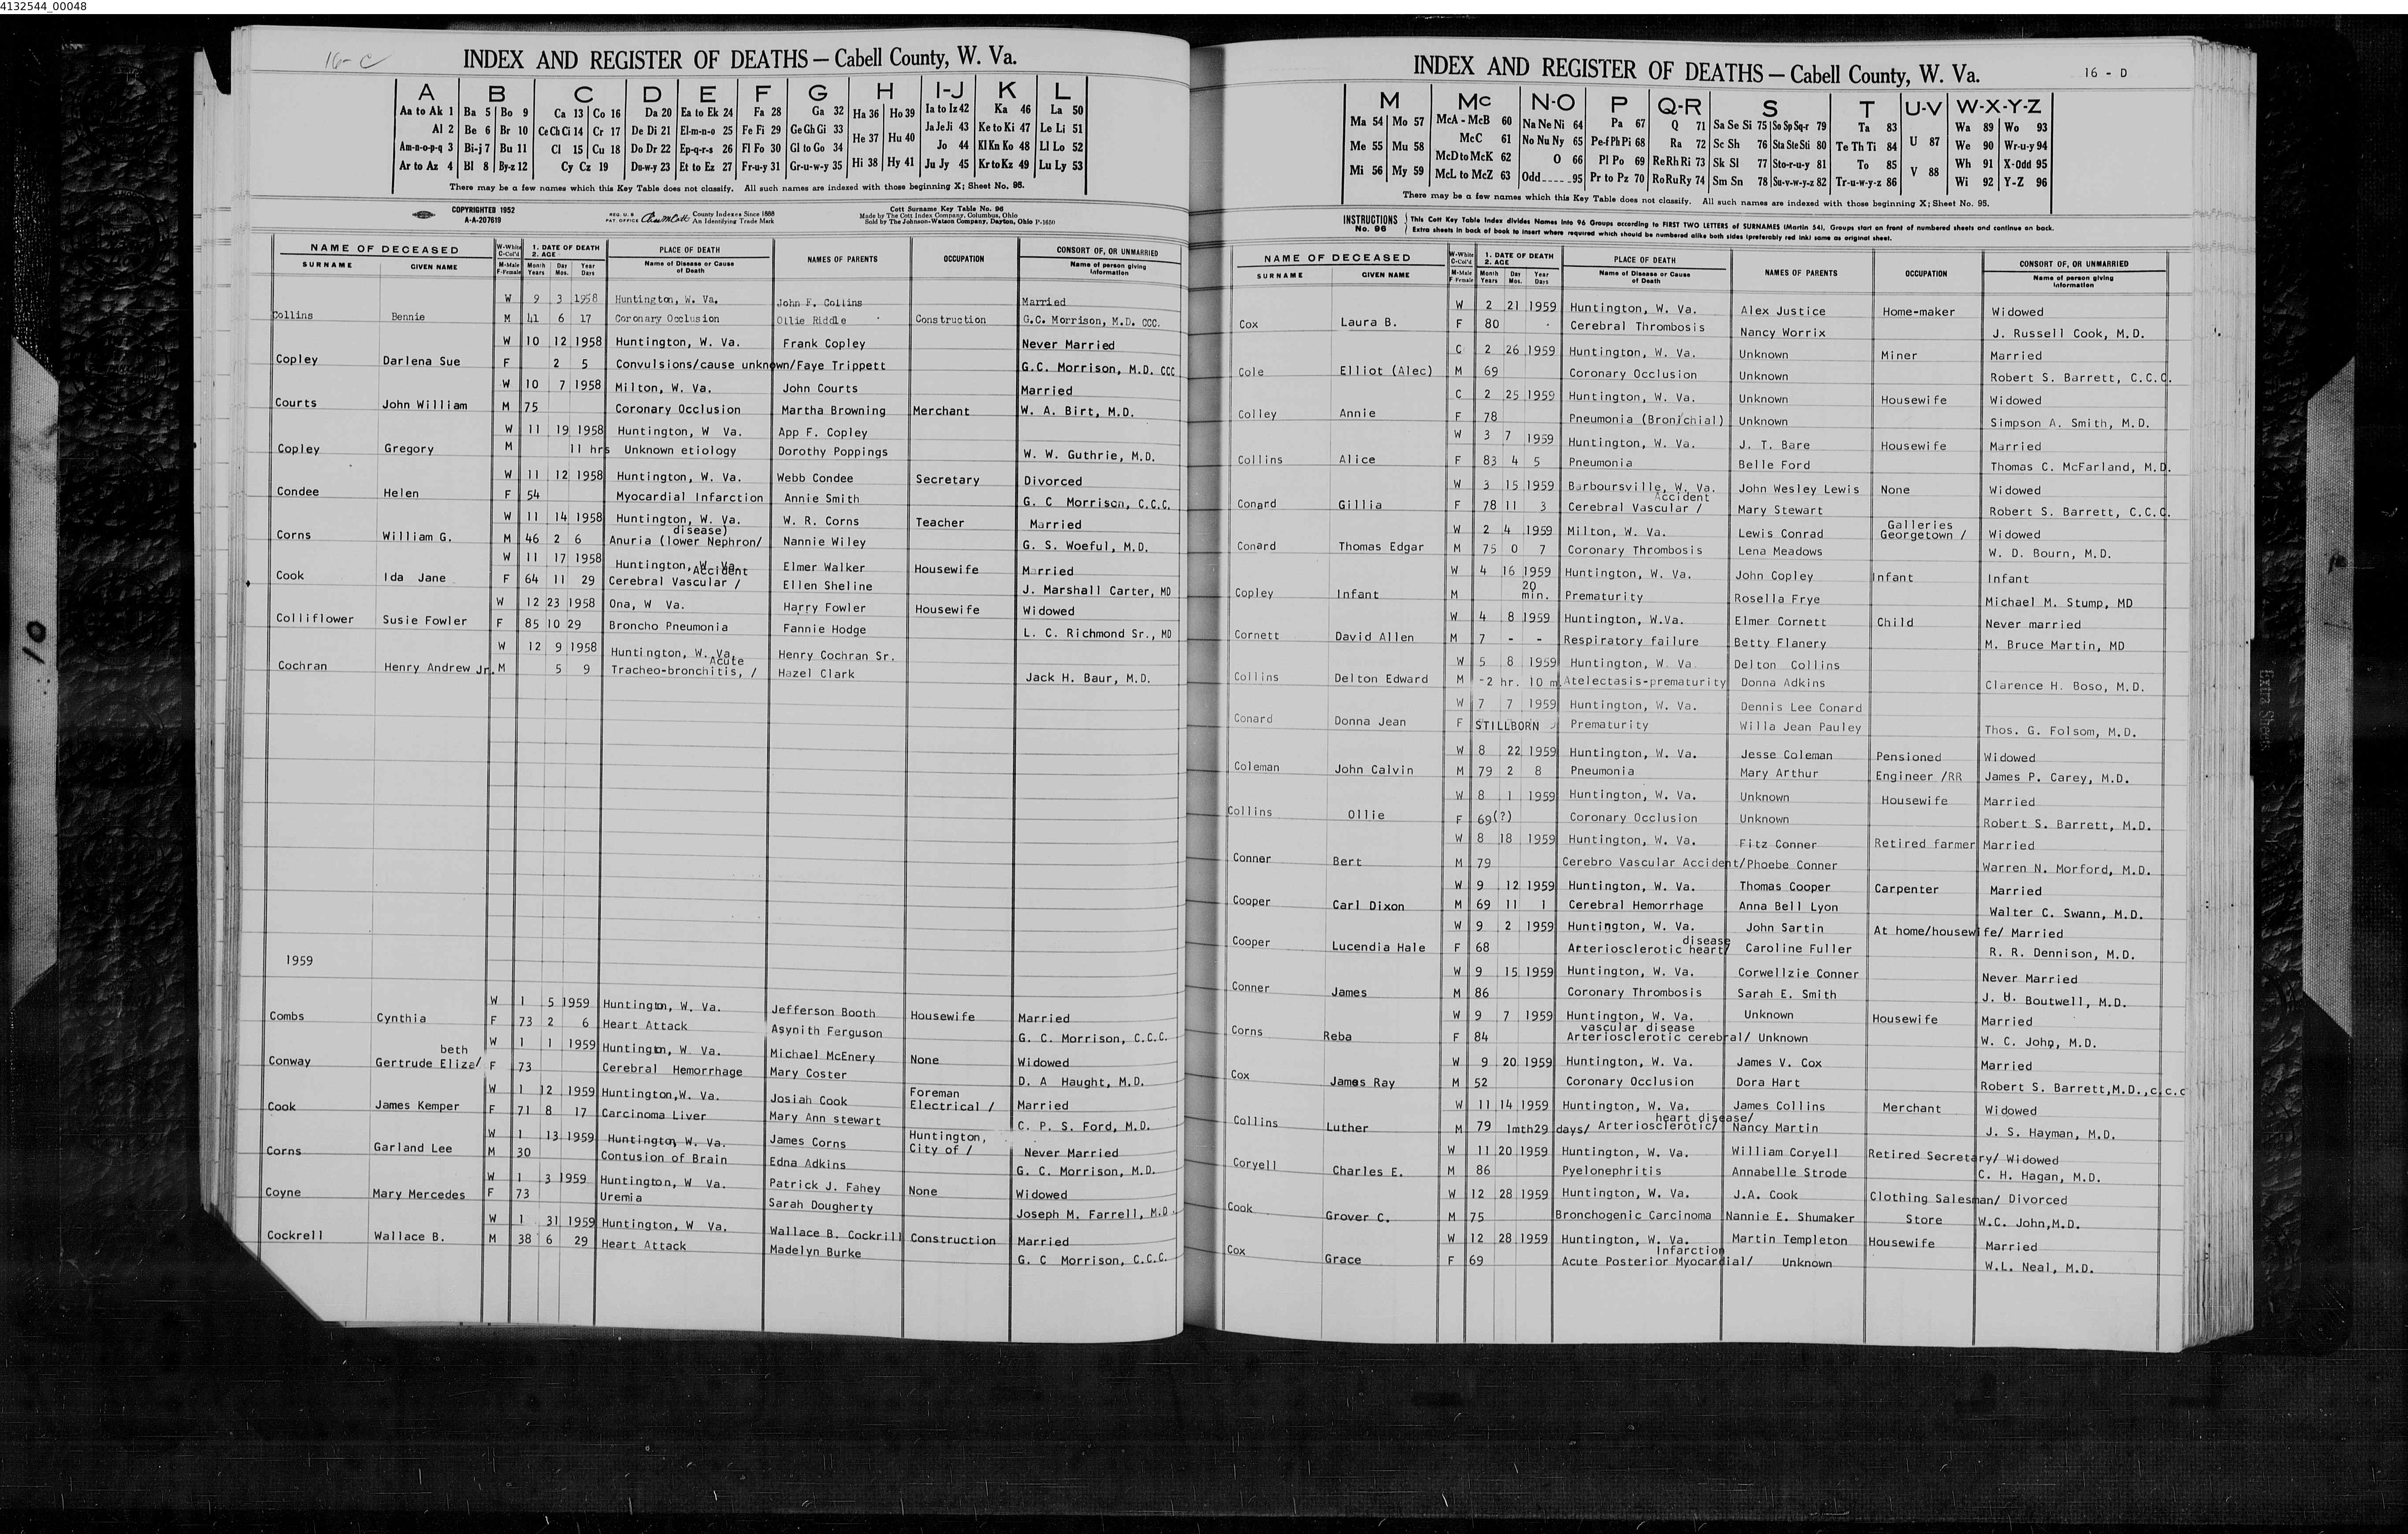 4132544_00048
16-C
INDEX AND REGISTER OF DEATHS — Cabell County, W. Va.
A B C D E F G H I-J K L
Aa to Ak 1 Ba 5 Bo 9 Ca 13 Co 16 Da 20 Ea to Ek 24 Fa 28 Ga 32 Ha 36 Ho 39 Ia to Iz 42 Ka 46 La 50
Al 2 Be 6 Br 10 Ce Ch Ci 14 Cr 17 De Di 21 El-m-n-o 25 Fe Fi 29 Ge Gh Gi 33 He 37 Hu 40 Ja Je Ji 43 Ke to Ki 47 Le Li 51
Am-n-o-p-q 3 Bi-j 7 Bu 11 Cl 15 Cu 18 Do Dr 22 Ep-q-r-s 26 Fl Fo 30 Gl to Go 34 Jo 44 Kl Kn Ko 48 Ll Lo 52
Ar to Az 4 Bl 8 By-z 12 Cy Cz 19 Du-w-y 23 Et to Ez 27 Fr-u-y 31 Gr-u-w-y 35 Hi 38 Hy 41 Ju Jy 45 Kr to Kz 49 Lu Ly 53
There may be a few names which this Key Table does not classify. All such names are indexed with those beginning X; Sheet No. 95.
COPYRIGHTED 1952
A-A-207619
REG. U. S. PAT. OFFICE County Indexes Since 1888 An Identifying Trade Mark
Cott Surname Key Table No. 96
Made by The Cott Index Company, Columbus, Ohio
Sold by The Johnson-Watson Company, Dayton, Ohio P-1650
NAME OF DECEASED SURNAME GIVEN NAME W-White C-Col'd M-Male F-Female 1. DATE OF DEATH 2. AGE Month Day Year Years Mos. Days PLACE OF DEATH Name of Disease or Cause of Death NAMES OF PARENTS OCCUPATION CONSORT OF, OR UNMARRIED Name of person giving Information
W 9 3 1958 Huntington, W. Va. John F. Collins Married
Collins Bennie M 41 6 17 Coronary Occlusion Ollie Riddle Construction G.C. Morrison, M.D. CCC.
W 10 12 1958 Huntington, W. Va. Frank Copley Never Married
Copley Darlena Sue F 2 5 Convulsions/cause unknown/Faye Trippett G.C. Morrison, M.D. CCC
W 10 7 1958 Milton, W. Va. John Courts Married
Courts John William M 75 Coronary Occlusion Martha Browning Merchant W. A. Birt, M.D.
W 11 19 1958 Huntington, W Va. App F. Copley
Copley Gregory M 11 hrs Unknown etiology Dorothy Poppings W. W. Guthrie, M.D.
W 11 12 1958 Huntington, W. Va. Webb Condee Secretary Divorced
Condee Helen F 54 Myocardial Infarction Annie Smith G. C Morrison, C.C.C.
W 11 14 1958 Huntington, W. Va. W. R. Corns Teacher Married
disease)
Corns William G. M 46 2 6 Anuria (lower Nephron/ Nannie Wiley G. S. Woeful, M.D.
W 11 17 1958 Huntington, W. Va. Elmer Walker Housewife Married
Accident
Cook Ida Jane F 64 11 29 Cerebral Vascular / Ellen Sheline J. Marshall Carter, MD
W 12 23 1958 Ona, W Va. Harry Fowler Housewife Widowed
Colliflower Susie Fowler F 85 10 29 Broncho Pneumonia Fannie Hodge L. C. Richmond Sr., MD
W 12 9 1958 Huntington, W. Va. Henry Cochran Sr.
Acute
Cochran Henry Andrew Jr. M 5 9 Tracheo-bronchitis, / Hazel Clark Jack H. Baur, M.D.
1959
W 1 5 1959 Huntington, W. Va. Jefferson Booth
Combs Cynthia F 73 2 6 Heart Attack Asynith Ferguson Housewife Married
G. C. Morrison, C.C.C.
beth W 1 1 1959 Huntington, W. Va. Michael McEnery
Conway Gertrude Eliza/ F 73 Cerebral Hemorrhage Mary Coster None Widowed
D. A Haught, M.D.
W 1 12 1959 Huntington,W. Va. Josiah Cook Foreman
Cook James Kemper F 71 8 17 Carcinoma Liver Mary Ann stewart Electrical / Married
C. P. S. Ford, M.D.
W 1 13 1959 Huntington W. Va. James Corns Huntington,
Corns Garland Lee M 30 Contusion of Brain Edna Adkins City of / Never Married
G. C. Morrison, M.D.
W 1 3 1959 Huntington, W Va. Patrick J. Fahey
Coyne Mary Mercedes F 73 Uremia Sarah Dougherty None Widowed
Joseph M. Farrell, M.D.
W 1 31 1959 Huntington, W Va. Wallace B. Cockrill
Cockrell Wallace B. M 38 6 29 Heart Attack Madelyn Burke Construction Married
G. C Morrison, C.C.C.
16 - D
INDEX AND REGISTER OF DEATHS — Cabell County, W. Va.
M Mc N-O P Q-R S T U-V W-X-Y-Z
Ma 54 Mo 57 McA - McB 60 Na Ne Ni 64 Pa 67 Q 71 Sa Se Si 75 So Sp Sq-r 79 Ta 83 U 87 Wa 89 Wo 93
Me 55 Mu 58 McC 61 No Nu Ny 65 Pe-f Ph Pi 68 Ra 72 Sc Sh 76 Sta Ste Sti 80 Te Th Ti 84 We 90 Wr-u-y 94
McD to McK 62 O 66 Pl Po 69 Re Rh Ri 73 Sk Sl 77 Sto-r-u-y 81 To 85 V 88 Wh 91 X-Odd 95
Mi 56 My 59 McL to McZ 63 Odd-----95 Pr to Pz 70 Ro Ru Ry 74 Sm Sn 78 Su-v-w-y-z 82 Tr-u-w-y-z 86 Wi 92 Y-Z 96
There may be a few names which this Key Table does not classify. All such names are indexed with those beginning X; Sheet No. 95.
INSTRUCTIONS No. 96
This Cott Key Table Index divides Names into 96 Groups according to FIRST TWO LETTERS of SURNAMES (Martin 54). Groups start on front of numbered sheets and continue on back.
Extra sheets in back of book to insert where required which should be numbered alike both sides (preferably red ink) same as original sheet.
NAME OF DECEASED SURNAME GIVEN NAME W-White C-Col'd M-Male F-Female 1. DATE OF DEATH 2. AGE Month Day Year Years Mos. Days PLACE OF DEATH Name of Disease or Cause of Death NAMES OF PARENTS OCCUPATION CONSORT OF, OR UNMARRIED Name of person giving Information
W 2 21 1959 Huntington, W. Va. Alex Justice Home-maker Widowed
Cox Laura B. F 80 Cerebral Thrombosis Nancy Worrix J. Russell Cook, M.D.
C 2 26 1959 Huntington, W. Va. Unknown Miner Married
Cole Elliot (Alec) M 69 Coronary Occlusion Unknown Robert S. Barrett, C.C.C.
C 2 25 1959 Huntington, W. Va. Unknown Housewife Widowed
Colley Annie F 78 Pneumonia (Bronichial) Unknown Simpson A. Smith, M.D.
W 3 7 1959 Huntington, W. Va. J. T. Bare Housewife Married
Collins Alice F 83 4 5 Pneumonia Belle Ford Thomas C. McFarland, M.D.
W 3 15 1959 Barboursville, W. Va. John Wesley Lewis None Widowed
Accident
Conard Gillia F 78 11 3 Cerebral Vascular / Mary Stewart Robert S. Barrett, C.C.C.
Galleries
W 2 4 1959 Milton, W. Va. Lewis Conrad Georgetown / Widowed
Conard Thomas Edgar M 75 0 7 Coronary Thrombosis Lena Meadows W. D. Bourn, M.D.
W 4 16 1959 Huntington, W. Va. John Copley Infant Infant
20
Copley Infant M min. Prematurity Rosella Frye Michael M. Stump, MD
W 4 8 1959 Huntington, W.Va. Elmer Cornett Child Never married
Cornett David Allen M 7 - - Respiratory failure Betty Flanery M. Bruce Martin, MD
W 5 8 1959 Huntington, W. Va Delton Collins
Collins Delton Edward M -2 hr. 10 m. Atelectasis-prematurity Donna Adkins Clarence H. Boso, M.D.
W 7 7 1959 Huntington, W. Va. Dennis Lee Conard
Conard Donna Jean F STILLBORN Prematurity Willa Jean Pauley Thos. G. Folsom, M.D.
W 8 22 1959 Huntington, W. Va. Jesse Coleman Pensioned Widowed
Coleman John Calvin M 79 2 8 Pneumonia Mary Arthur Engineer /RR James P. Carey, M.D.
W 8 1 1959 Huntington, W. Va. Unknown Housewife Married
Collins Ollie F 69(?) Coronary Occlusion Unknown Robert S. Barrett, M.D.
W 8 18 1959 Huntington, W. Va. Fitz Conner Retired farmer Married
Conner Bert M 79 Cerebro Vascular Accident/Phoebe Conner Warren N. Morford, M.D.
W 9 12 1959 Huntington, W. Va. Thomas Cooper Carpenter Married
Cooper Carl Dixon M 69 11 1 Cerebral Hemorrhage Anna Bell Lyon Walter C. Swann, M.D.
W 9 2 1959 Huntington, W. Va. John Sartin At home/housewife/ Married
disease
Cooper Lucendia Hale F 68 Arteriosclerotic heart/ Caroline Fuller R. R. Dennison, M.D.
W 9 15 1959 Huntington, W. Va. Corwellzie Conner Never Married
Conner James M 86 Coronary Thrombosis Sarah E. Smith J. H. Boutwell, M.D.
W 9 7 1959 Huntington, W. Va. Unknown Housewife Married
vascular disease
Corns Reba F 84 Arteriosclerotic cerebral/ Unknown W. C. John, M.D.
W 9 20 1959 Huntington, W. Va. James V. Cox Married
Cox James Ray M 52 Coronary Occlusion Dora Hart Robert S. Barrett,M.D.,c.c.c
W 11 14 1959 Huntington, W. Va. James Collins Merchant Widowed
heart disease/
Collins Luther M 79 1mth29 days/ Arteriosclerotic/ Nancy Martin J. S. Hayman, M.D.
W 11 20 1959 Huntington, W. Va. William Coryell Retired Secretary/ Widowed
Coryell Charles E. M 86 Pyelonephritis Annabelle Strode C. H. Hagan, M.D.
W 12 28 1959 Huntington, W. Va. J.A. Cook Clothing Salesman/ Divorced
Cook Grover C. M 75 Bronchogenic Carcinoma Nannie E. Shumaker Store W.C. John,M.D.
W 12 28 1959 Huntington, W. Va. Martin Templeton Housewife Married
Infarction
Cox Grace F 69 Acute Posterior Myocardial/ Unknown W.L. Neal, M.D.
Extra Sheets